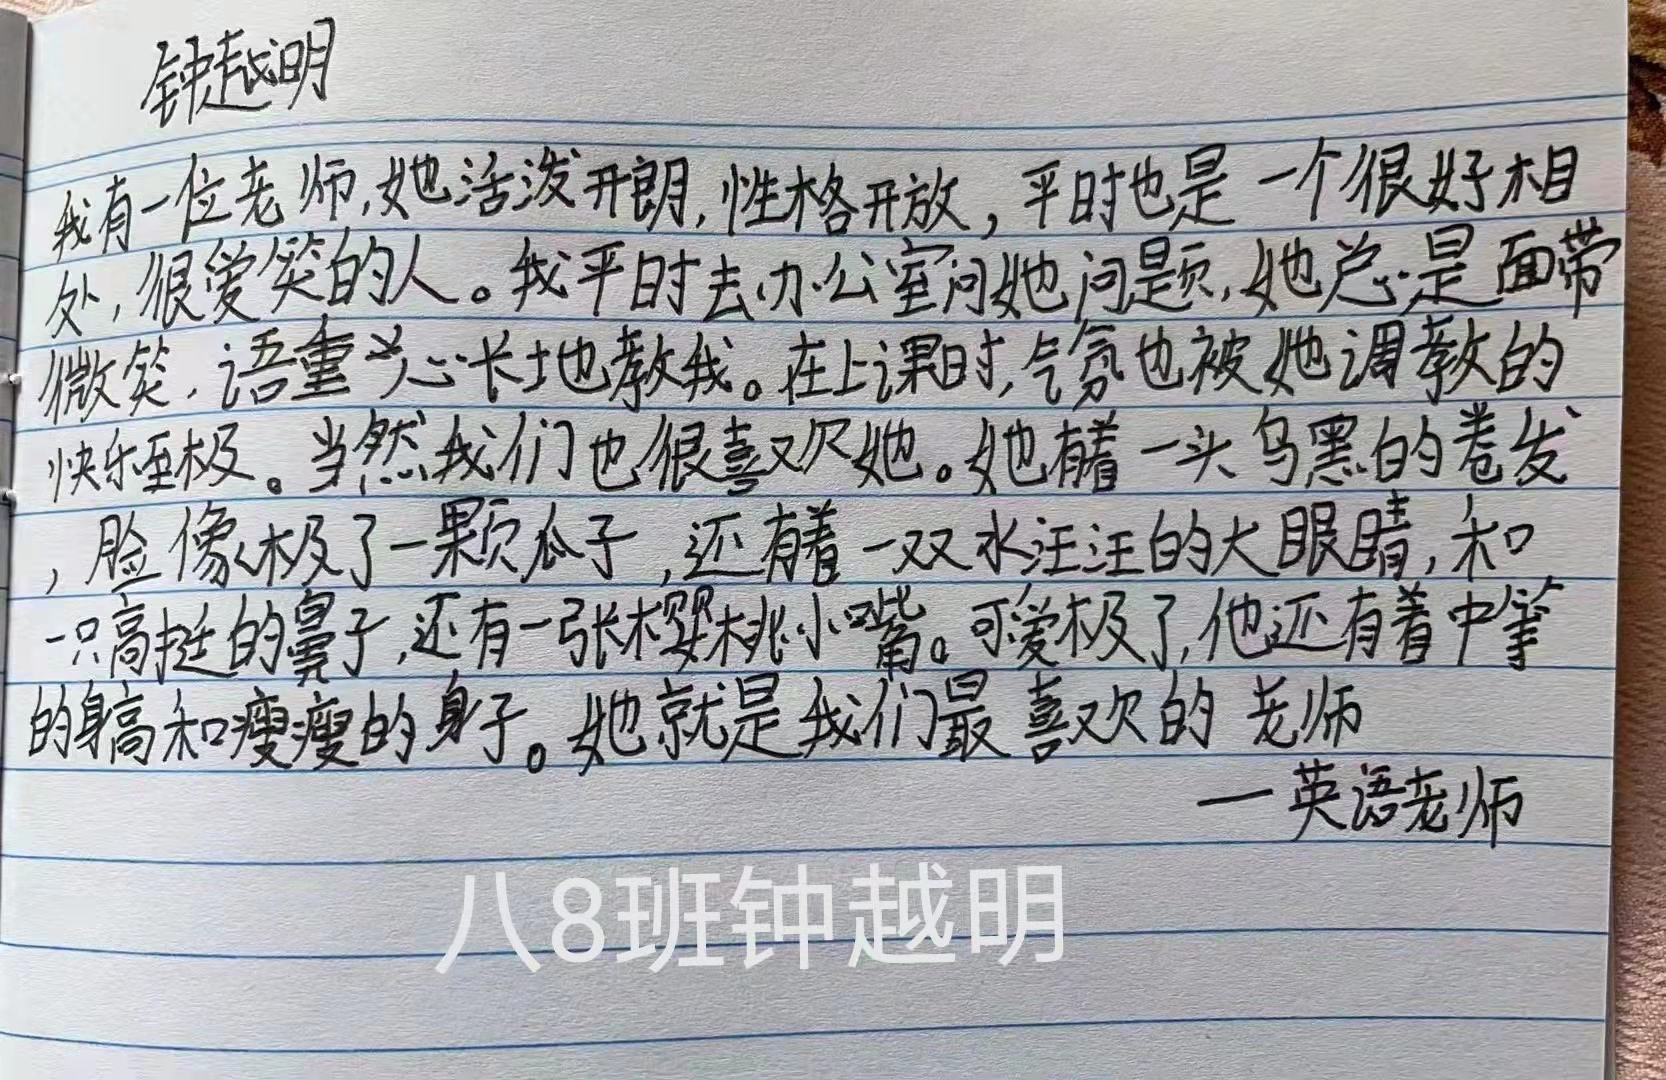 钟越明
我有一位老师,她活泼开朗,性格开放,平时也是一个很好相
处,很爱笑的人。我平时去办公室问她问题,她总是面带
微笑,语重心长地教我。在上课时,气氛也被她调教的
快乐至极。当然我们也很喜欢她。她有着一头乌黑的卷发
,脸像极了一颗瓜子,还有着一双水汪汪的大眼睛,和
一只高挺的鼻子,还有一张樱桃小嘴。可爱极了,他还有着中等
的身高和瘦瘦的身子。她就是我们最喜欢的老师
一英语老师
八8班钟越明